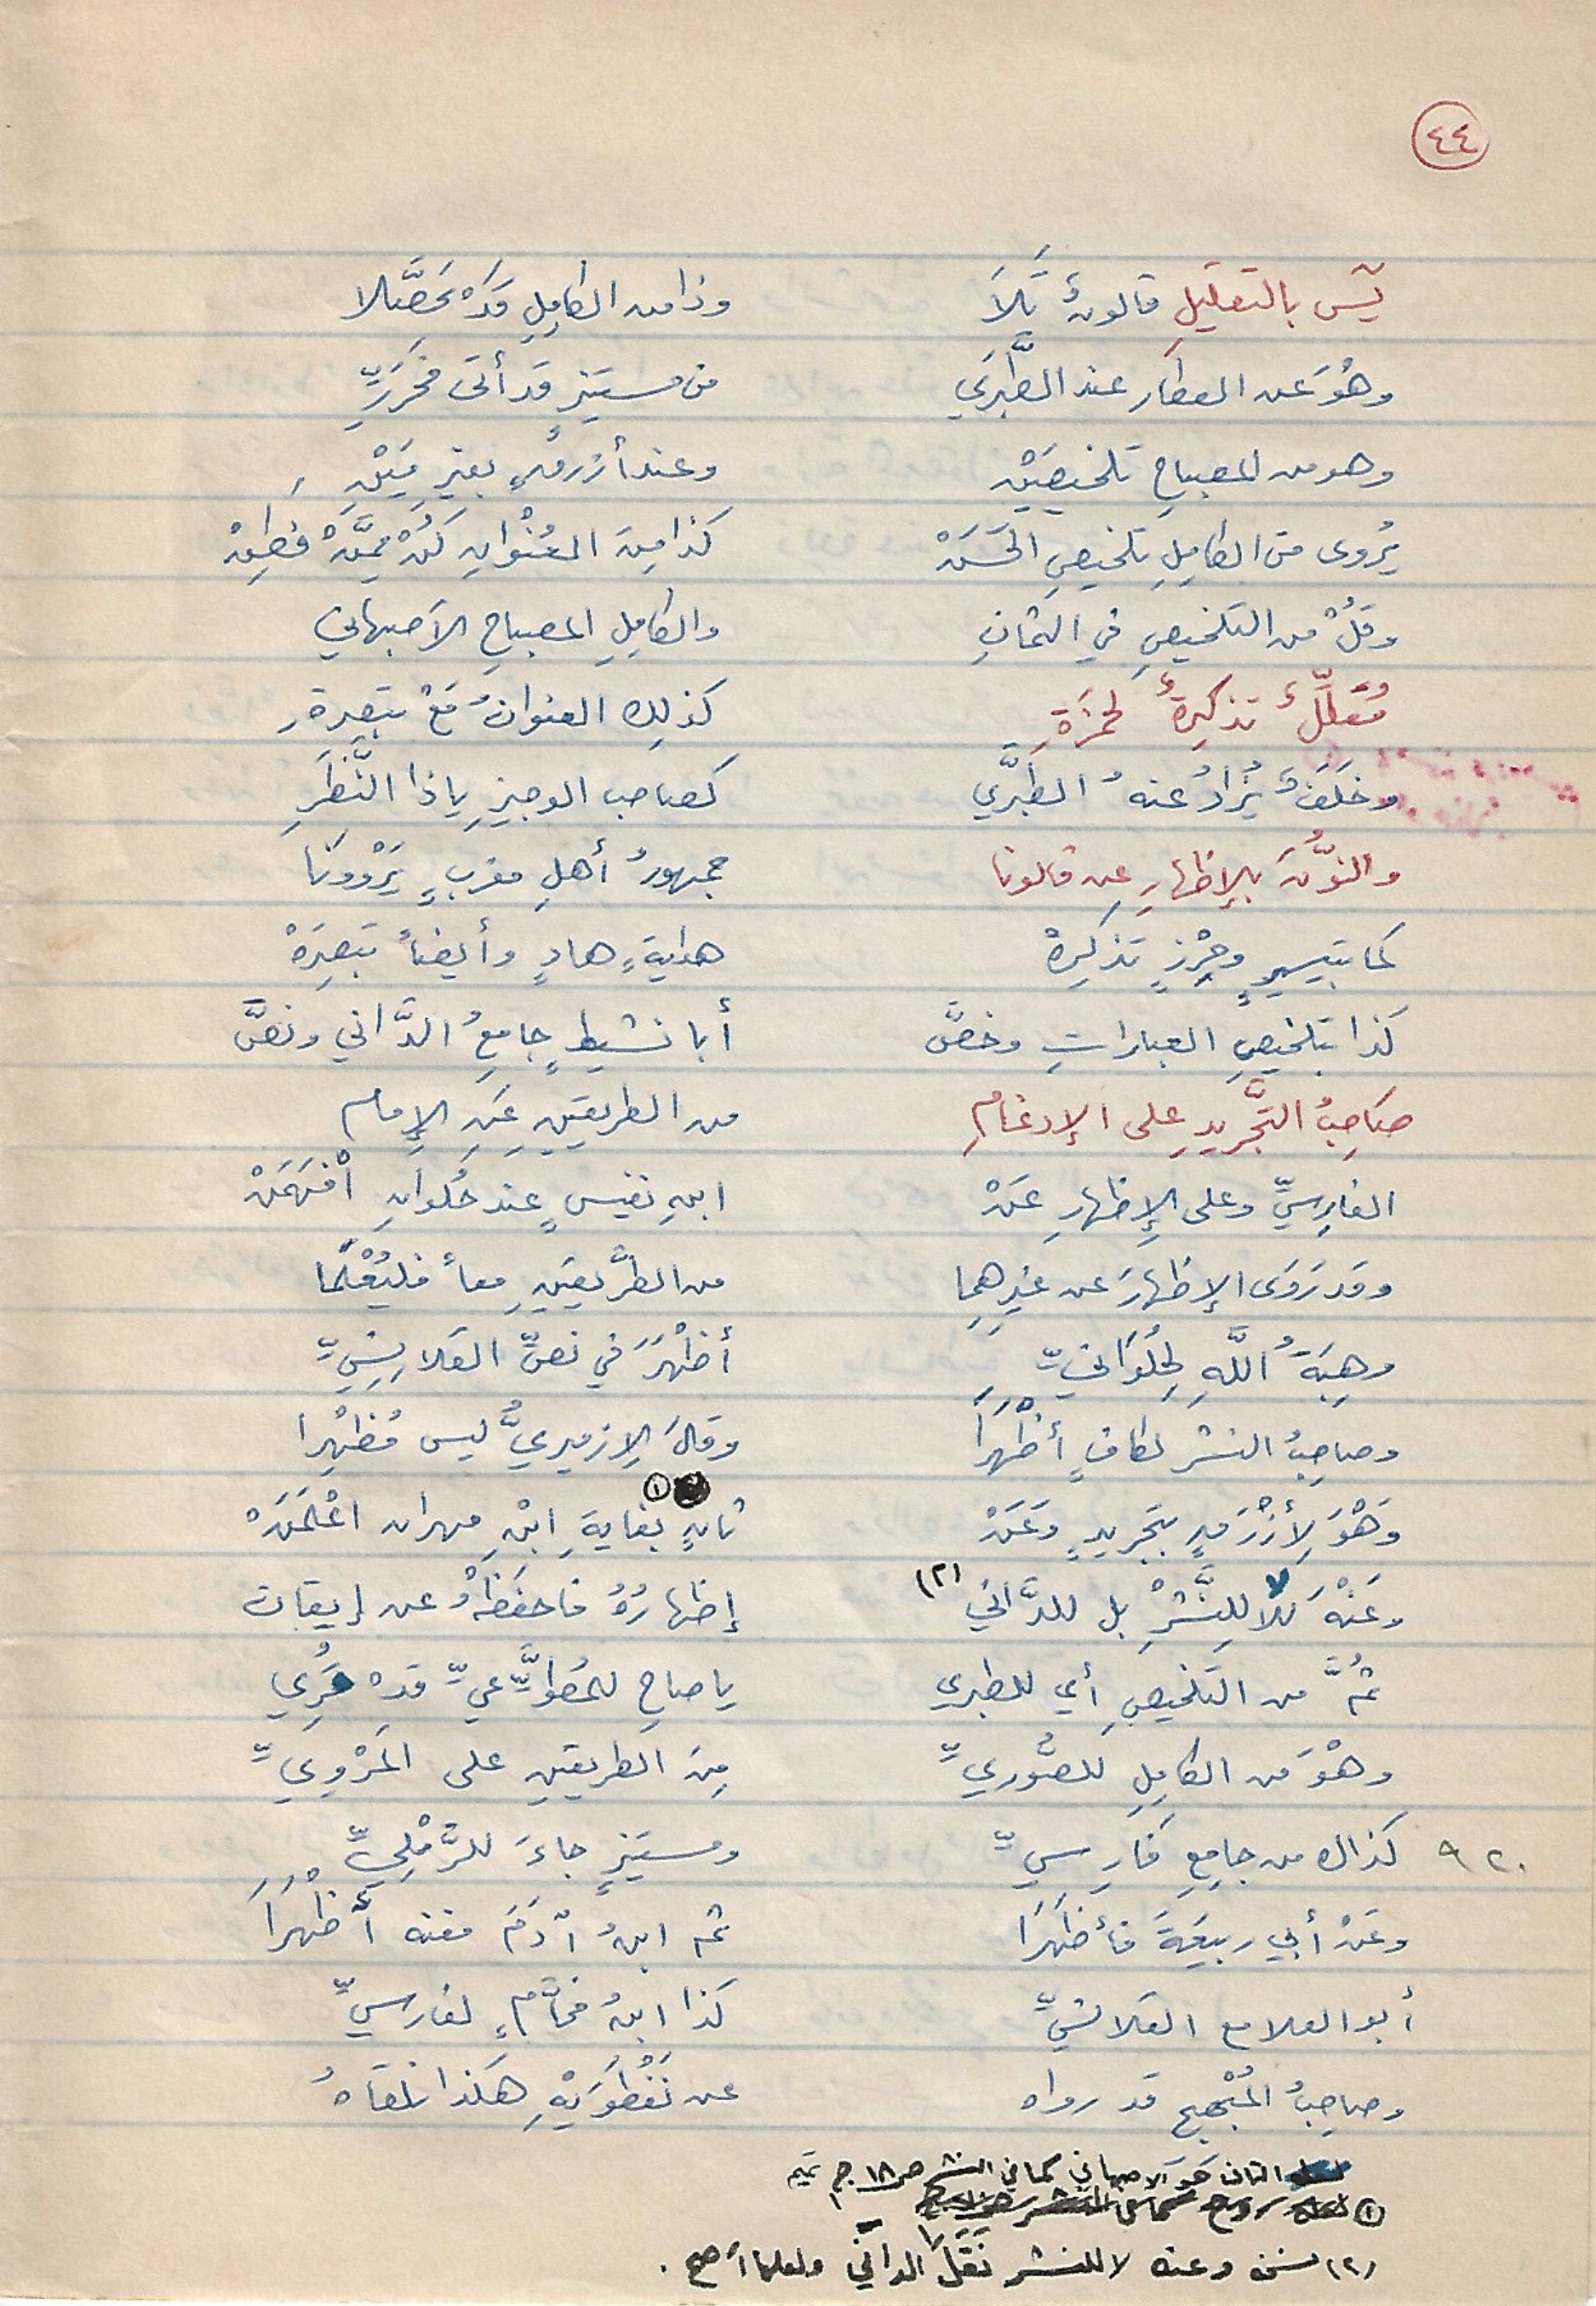 ٤٤
يٓس بالتقليلِ قالونٌ تَلاَ وذا من الكاملِ قَدْ تَحَصَّلا
وهْوَ عن العطار عند الطَّبَري من مستنيرٍ قد أتى فحَرِّرِ
وهو من المصباحِ تلخيصَيْن وعند أزرقٍ بغيرِ مَيْنِ
يُروى من الكاملِ تلخيصِ الحَسَنْ كذا مِنَ العُنْوانِ كُنْ مِمَّنْ فَطِنْ
وقُلْ من التلخيصِ في الثمانِ والكاملِ المصباحِ الأصبهاني
مُقَلِّلٌ تذكِرةٌ لحمزَةِ كذلك العنوانُ مَعْ تبصِرةِ
وخَلَفٌ يُزادُ عنهُ الطَبَّري كصاحب الوجيزِ ياذا النَّظَرِ
والنُّونَ بالإظهارِ عن قالونا جمهورُ أهلِ مغربٍ يَرْوونَا
كما بتيسيرٍ وحِرْزٍ تذكِرةْ هدايةٍ هادٍ وأيضاً تبصِرَةْ
كذا بتلخيصِ العباراتِ وخصَّ أبا نشيطٍ جامعُ الدَّاني ونصَّ
صَاحِبُ التَّجْريدِ على الإدغامِ من الطريقين عَنِ الإمام
الفارسيِّ وعلى الإظهارِ عَنْ ابنِ نفيسٍ عند حُلوانِ افْهَمَنْ
وقد رَوَى الإظهارَ عن غيرِهِما من الطَّريقينِ معاً فليُعْلَما
وهِبَةُ اللَّهِ لِحُلْوَانيِّ أظْهَرَ في نصِّ القَلانِسِيِّ
وصاحِبُ النشر لكافٍ أظْهَرَا وقالَ الإزميريُّ ليس مُظهِرا
وَهْوَ لِأزْرَقٍ بتجريدٍ وَعَنْ ثانٍ بغايةِ ابْنِ مهران اعْلَمَنْ ①
وعَنْهُ لا للنَّشْرِ بل للدَّاني (٢) إظهارُهُ فاحفَظْهُ عن إيقان
ثُمَّ من التلخيصِ أي للطبري ياصاحِ للمُطَّوِّعيِّ قدْ حُرِي
وهْوَ من الكاملِ للصُّوريِّ مِنَ الطريقينِ على المَرْوِيِّ
٩٢٠ كذاك من جامِعِ فَارِسيِّ ومستنيرٍ جاءَ للرَّمْلِيِّ
وعَنْ أبي ربيعَةَ فأظهَرَا ثم ابنُ آدَمَ فعنه أظْهَرَا
أبو العلا مع القلانسيِّ كذا ابنُ فحَّامٍ لفارسيِّ
وصاحِبُ المُبْهِج قد رواه عن نَفْطَوَيْهِ هكذا نلقاهُ
الثان هَوَ الاصبهاني كما في النشر ص ١٨ ج ٢
①
(٢) نسخة وعنه لا للنشر نَقَلَ الداني ولعلها أصح .